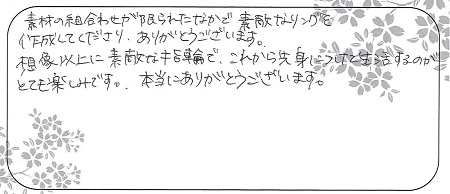 素材の組合わせが限られたなかで素敵なリングを
作成してくださり、ありがとうございます。
想像以上に素敵な指輪で、これから先身につけて生活するのが
とても楽しみです。本当にありがとうございます。